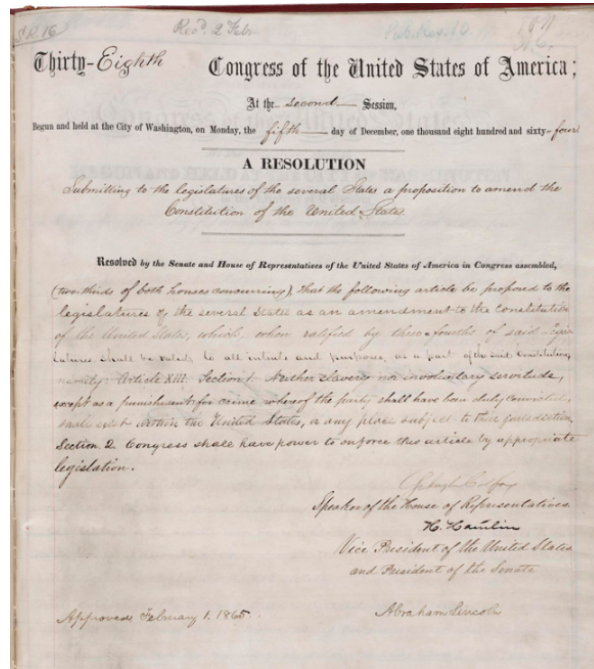 S.R. 16
Rec'd 2 Feb.
Pub. Res. 10.
Thirty-Eighth Congress of the United States of America;
At the second Session,
Begun and held at the City of Washington, on Monday, the fifth day of December, one thousand eight hundred and sixty-four
A RESOLUTION
Submitting to the legislatures of the several States a proposition to amend the
Constitution of the United States.
Resolved by the Senate and House of Representatives of the United States of America in Congress assembled,
(two-thirds of both houses concurring), That the following article be proposed to the
legislatures of the several States as an amendment to the Constitution
of the United States, which, when ratified by three-fourths of said Legis-
latures, shall be valid, to all intents and purposes, as a part of the said Constitution,
namely: Article XIII. Section 1. Neither slavery nor involuntary servitude,
except as a punishment for crime whereof the party shall have been duly convicted,
shall exist within the United States, or any place subject to their jurisdiction.
Section 2. Congress shall have power to enforce this article by appropriate
legislation.
Schuyler Colfax
Speaker of the House of Representatives.
H. Hamlin
Vice President of the United States,
and President of the Senate
Approved, February 1. 1865. Abraham Lincoln